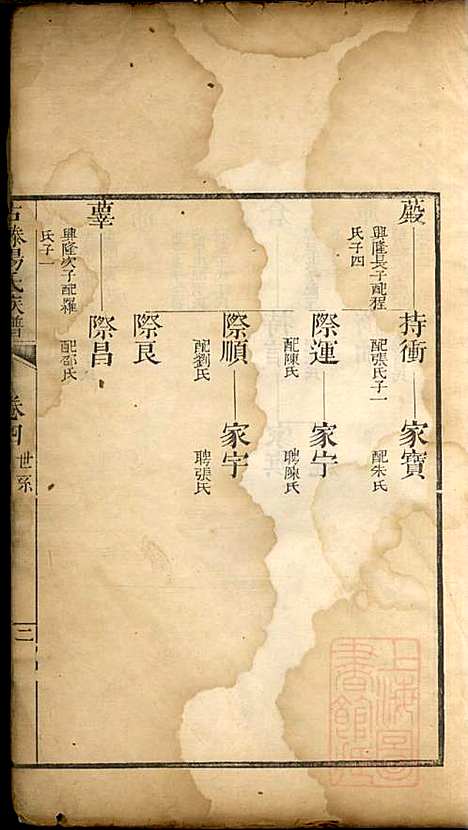 持衝 家寶
興隆長子配程
氏子四
配張氏子一
配朱氏
際運 家宁
配陳氏
聘陳氏
際順 家宇
配劉氏
聘張氏
際良
際昌
興隆次子配羅
氏子一
氏族譜 卷四 世系
上海圖
書館藏